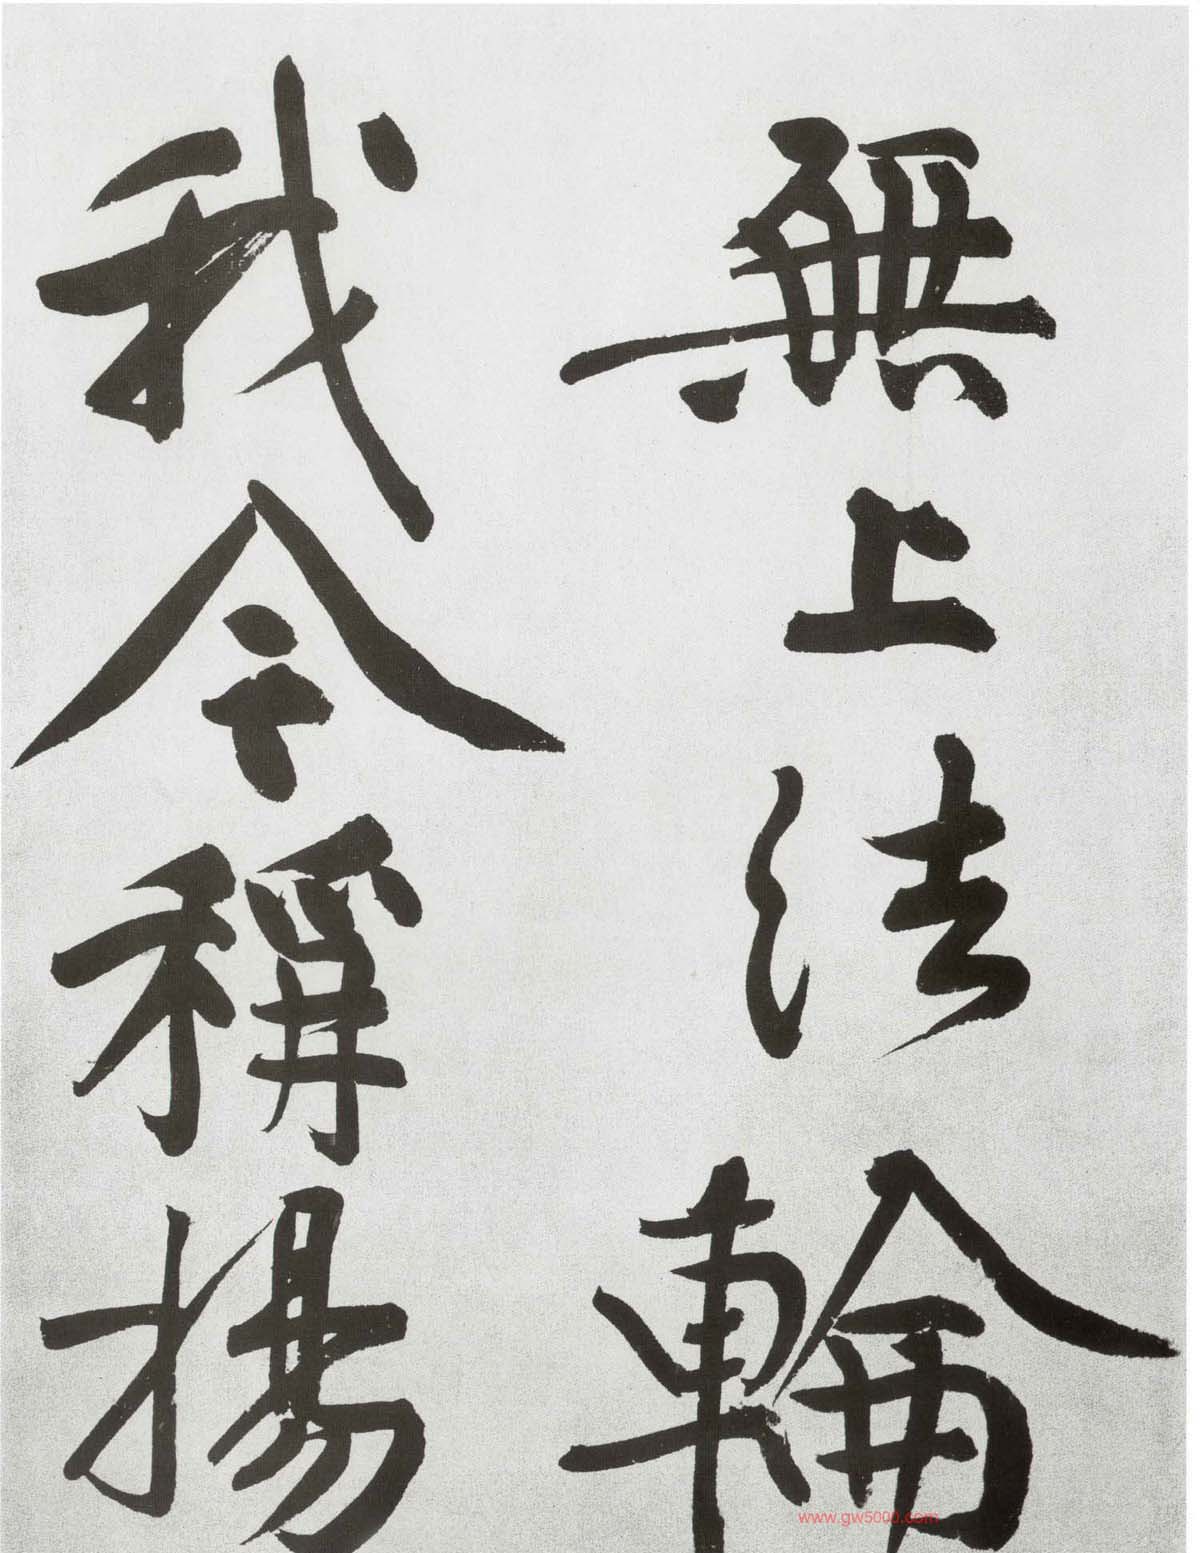 無上法輪
我今稱揚
www.gw5000.com